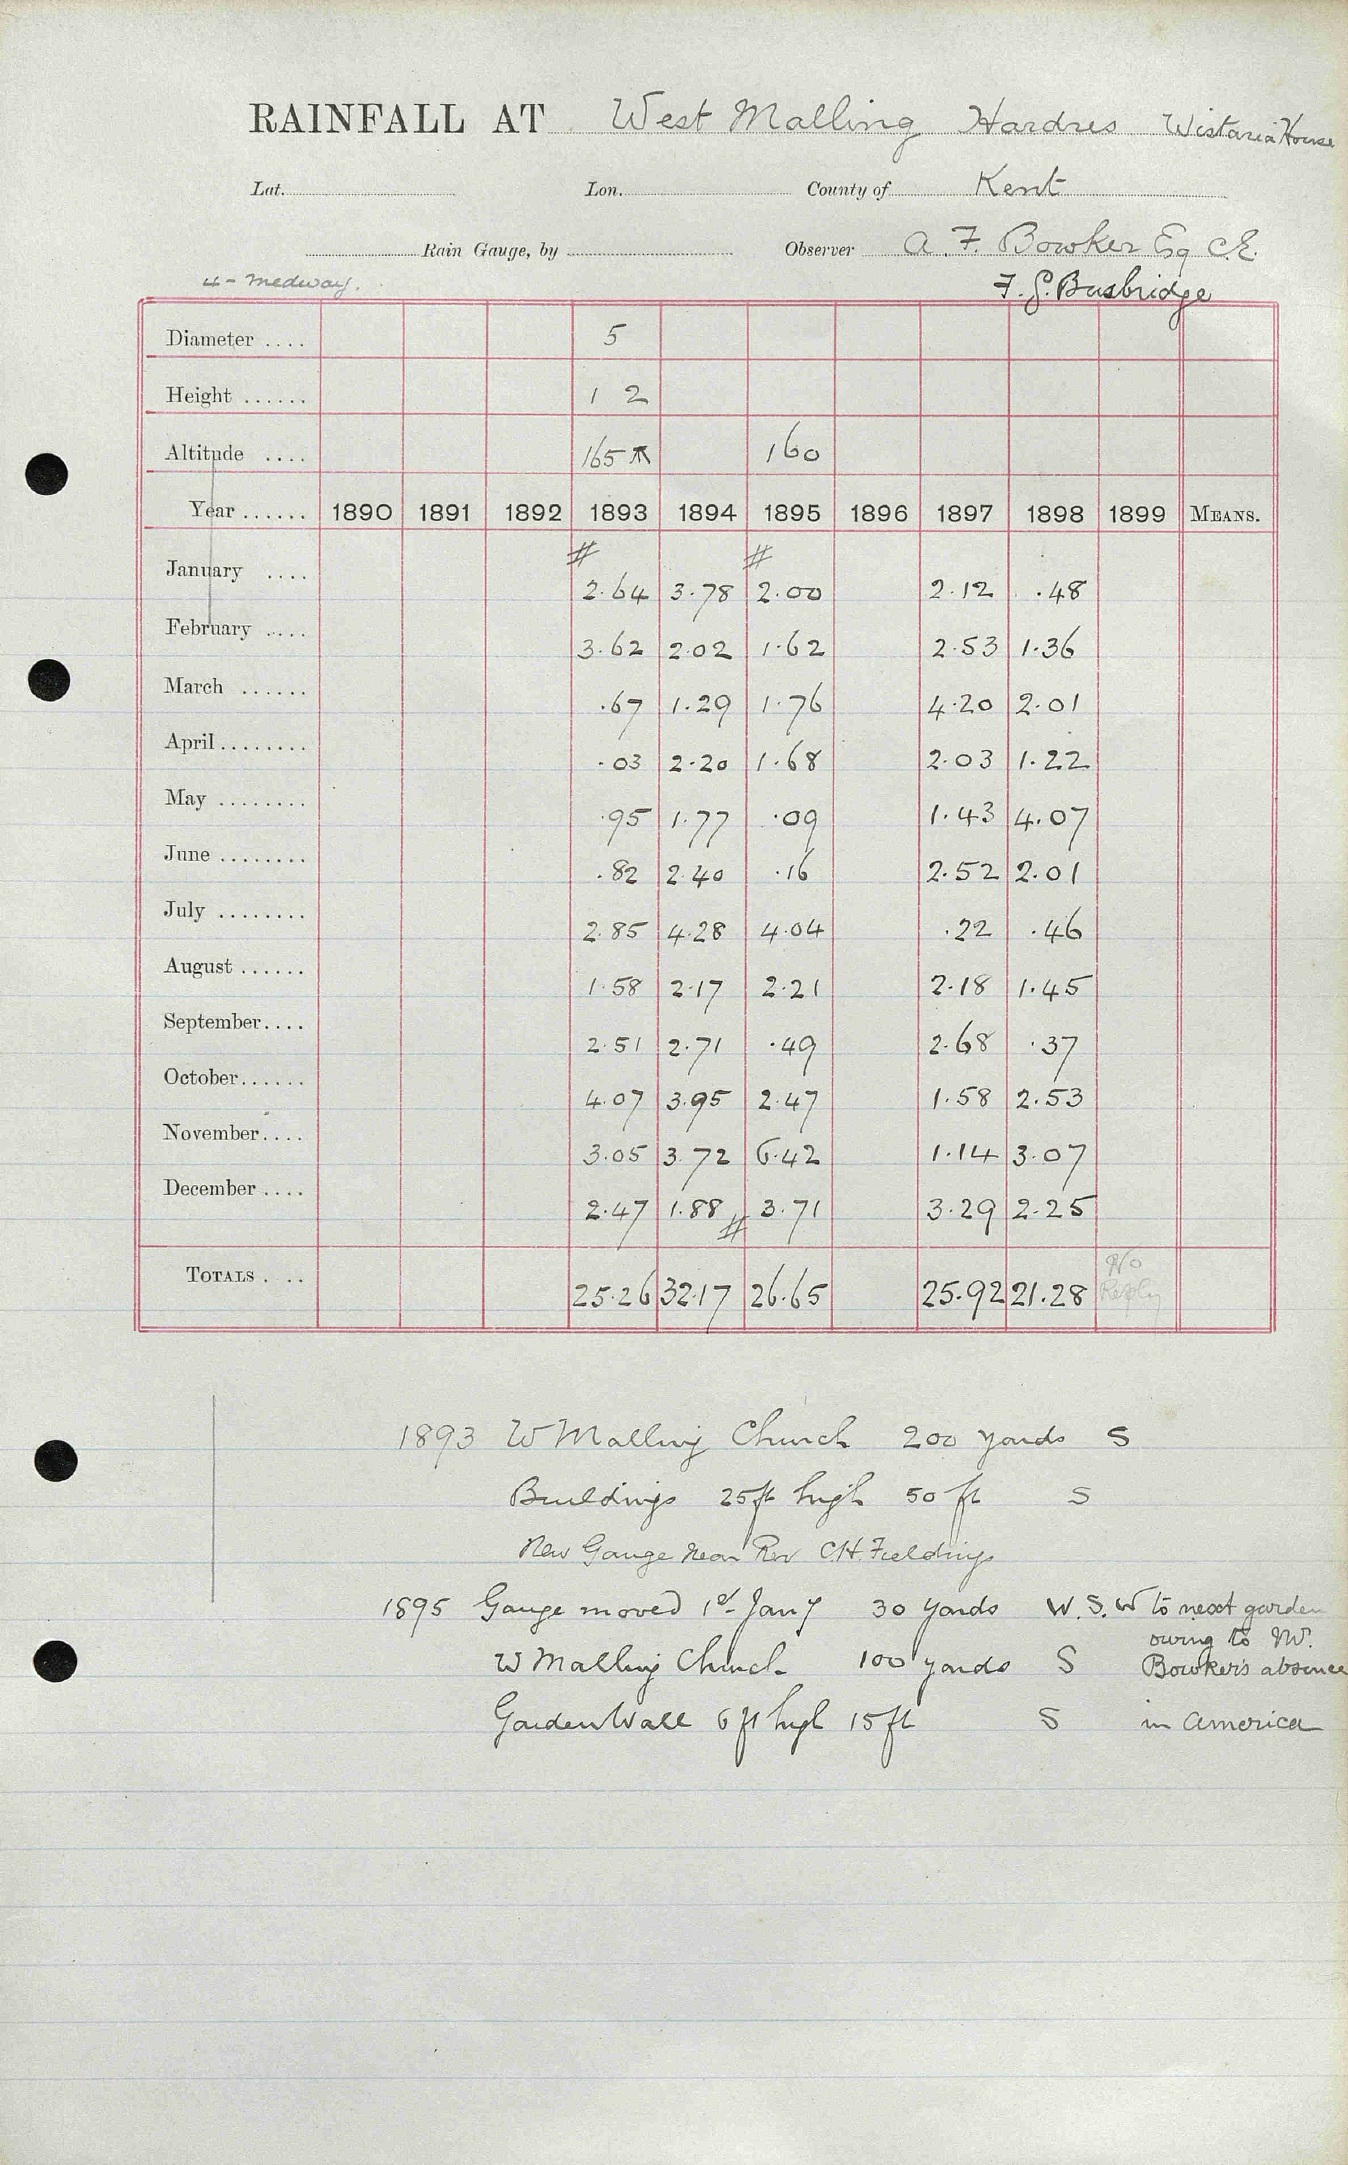 RAINFALL AT West Malling Hardres Wistaria House
Lat. Lon. County of Kent
Rain Gauge, by Observer A. F. Bowker Esq C.E.
4 - Medway. F. G. Busbridge
Diameter .... 5
Height ...... 1 2
Altitude .... 165 160
Year ...... 1890 1891 1892 1893 1894 1895 1896 1897 1898 1899 MEANS.
# #
January .... 2.64 3.78 2.00 2.12 .48
February .... 3.62 2.02 1.62 2.53 1.36
March ...... .67 1.29 1.76 4.20 2.01
April ........ .03 2.20 1.68 2.03 1.22
May ........ .95 1.77 .09 1.43 4.07
June ........ .82 2.40 .16 2.52 2.01
July ........ 2.85 4.28 4.04 .22 .46
August ...... 1.58 2.17 2.21 2.18 1.45
September.... 2.51 2.71 .49 2.68 .37
October...... 4.07 3.95 2.47 1.58 2.53
November.... 3.05 3.72 6.42 1.14 3.07
December .... 2.47 1.88 # 3.71 3.29 2.25
TOTALS . .. 25.26 32.17 26.65 25.92 21.28 No Reply
1893 W Malling Church 200 yards S
Buildings 25ft high 50 ft S
New Gauge near Rev C.H. Fieldings
1895 Gauge moved 1st Jany 30 yards W.S.W to next garden
owing to Mr.
W Malling Church 100 yards S Bowker's absence
Garden Wall 6 ft high 15 ft S in America